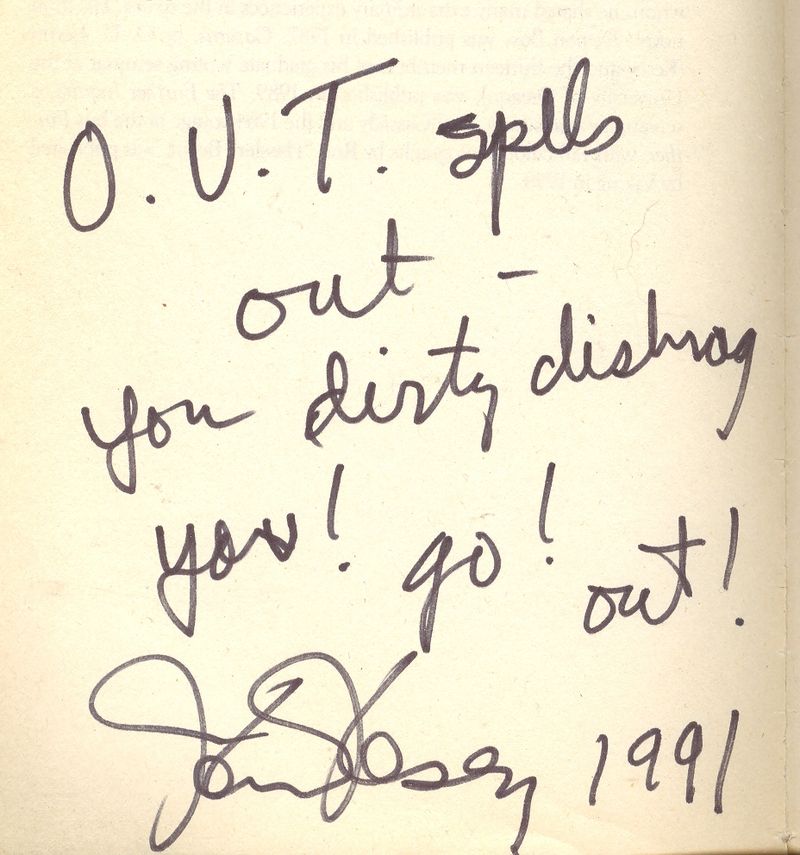 O.U.T. spells
out -
you dirty dishrag
you! go! out!
Ken Kesey 1991